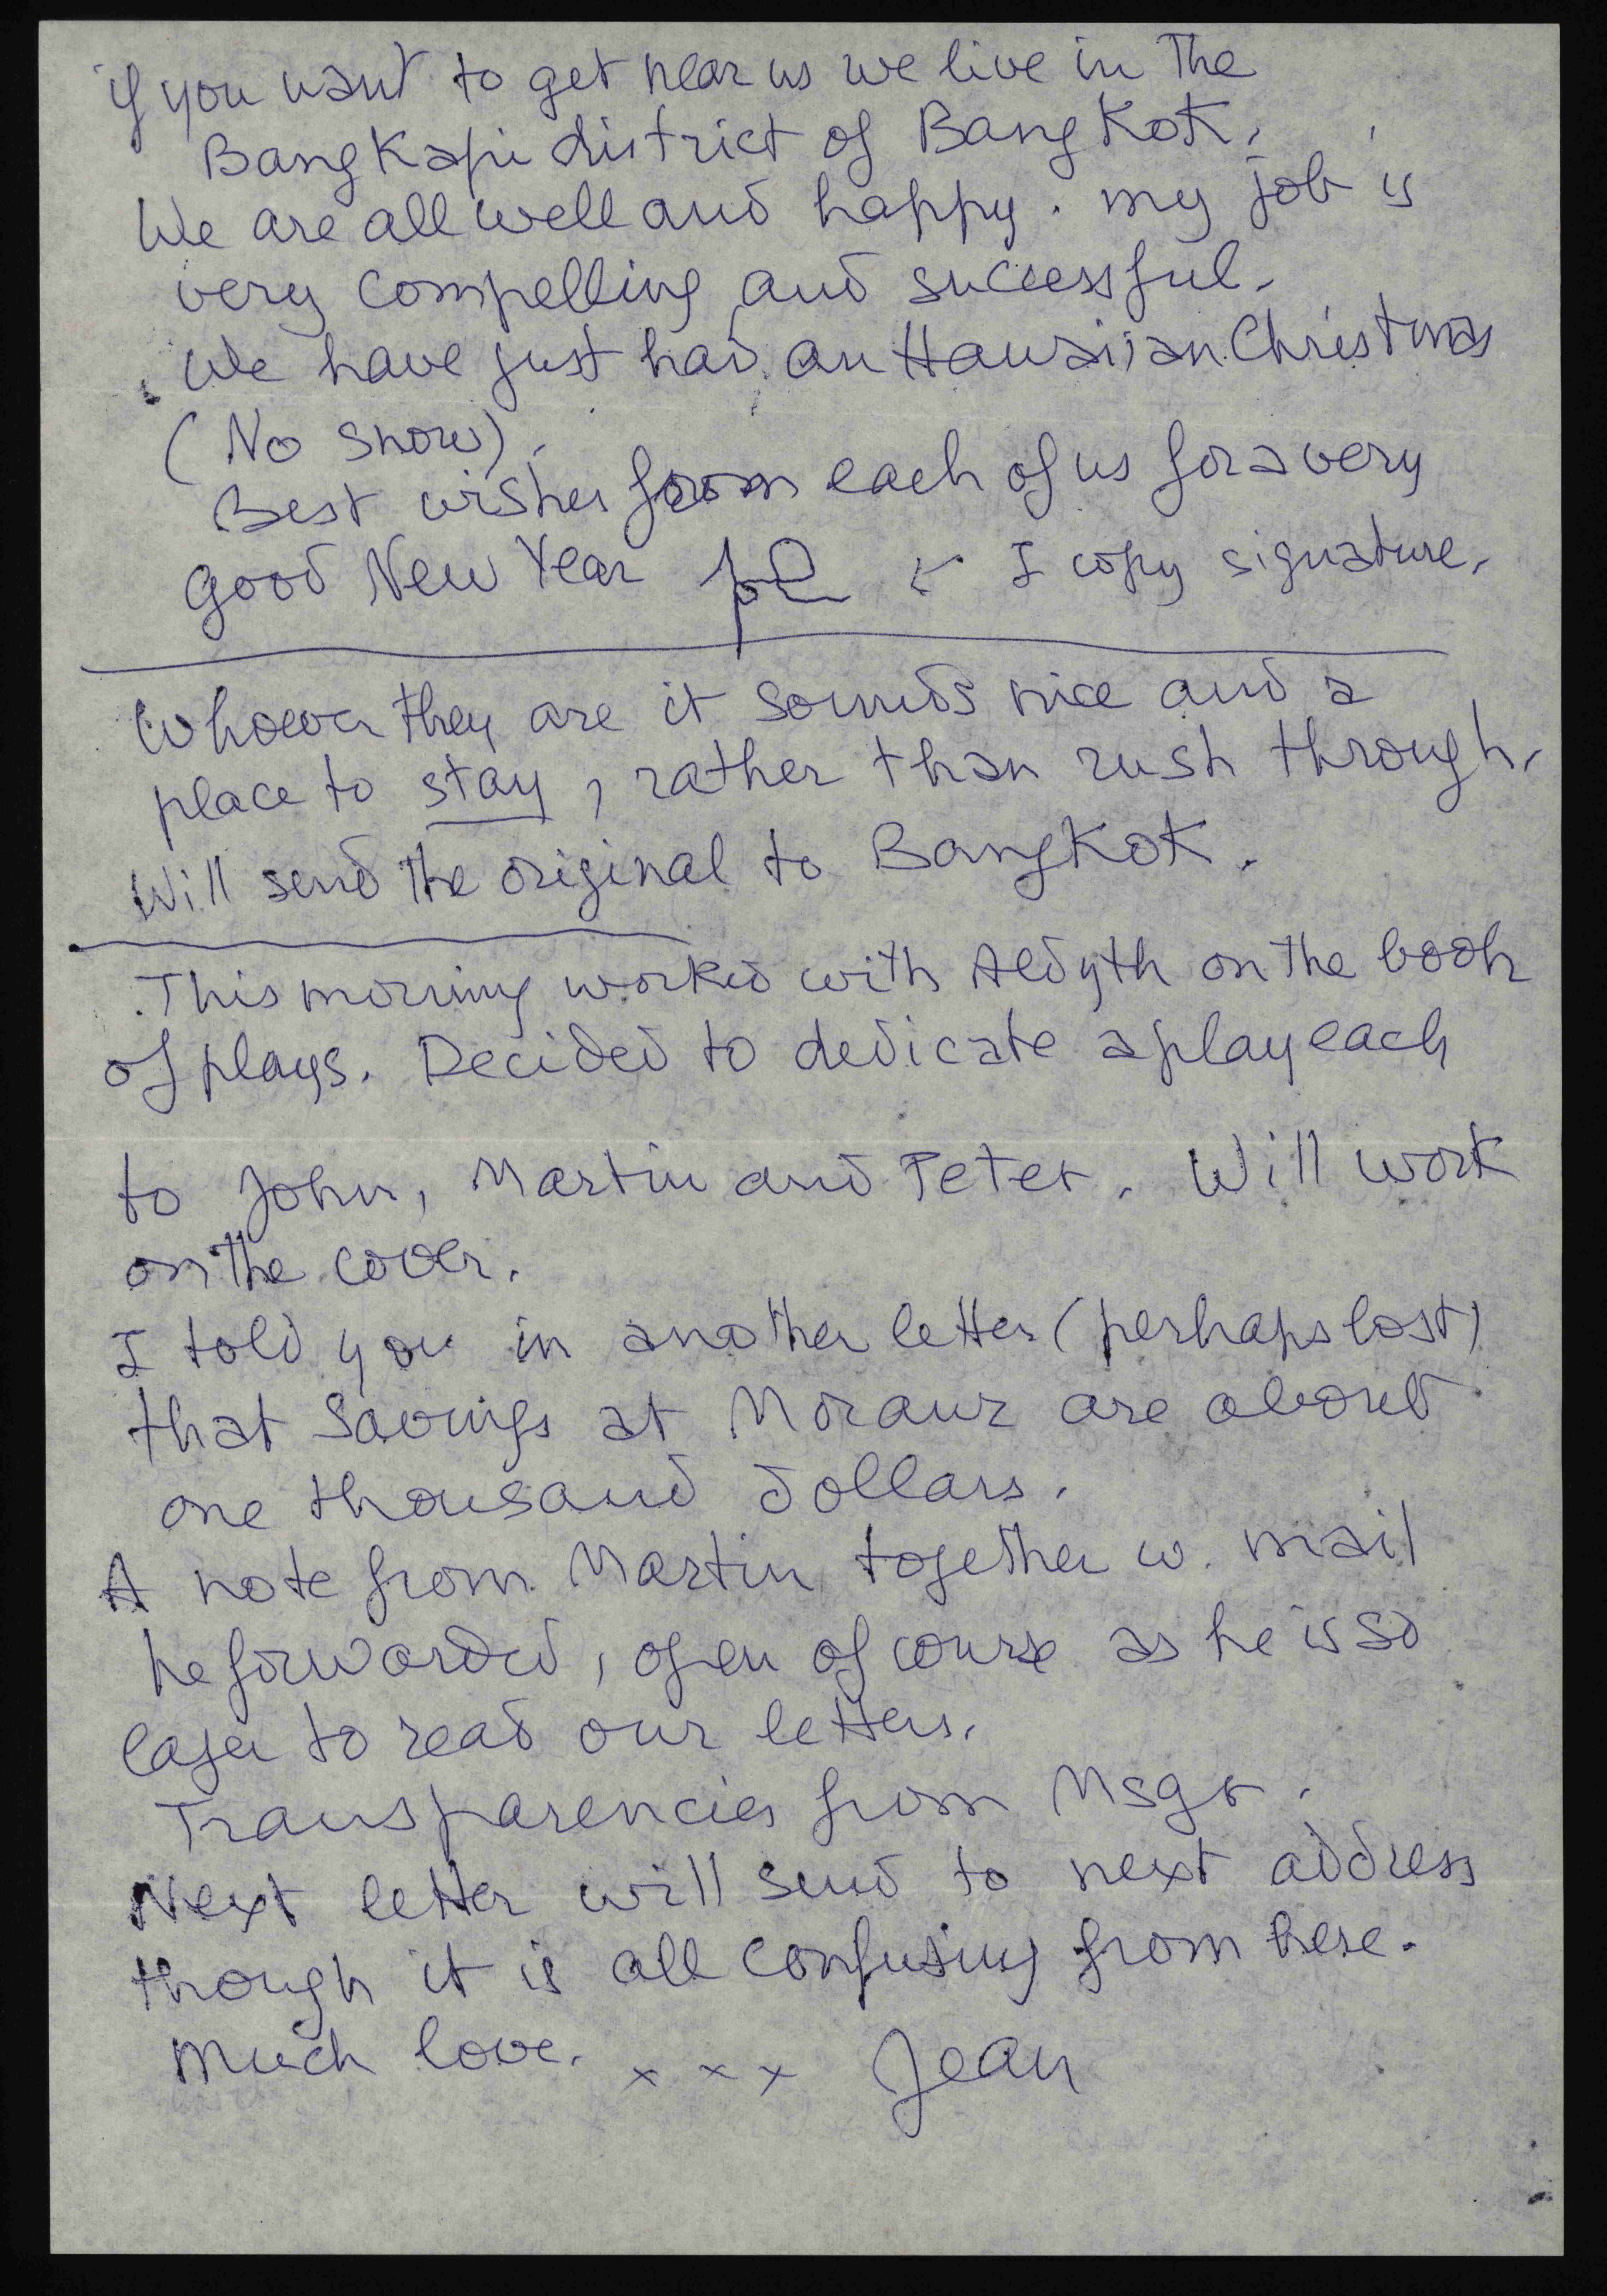 if you want to get near us we live in the
Bang Kapi district of BangKok.
We are all well and happy. my job is
very compelling and successful.
We have just had an Hawaiian Christmas
(No snow).
Best wishes from each of us for a very
good New Year ← I copy signature.
Whoever they are it sounds nice and a
place to stay, rather than rush through.
Will send the original to BangKok.
This morning worked with Aldyth on the book
of plays. Decided to dedicate a play each
to John, Martin and Peter. Will work
on the cover.
I told you in another letter (perhaps lost)
that Savings at are about
one thousand dollars.
A note from Martin together w. mail
he forwarded, open of course as he is so
eager to read our letters.
Transparencies from Msgr.
Next letter will send to next address
though it is all confusing from here.
Much love. x x x Jean